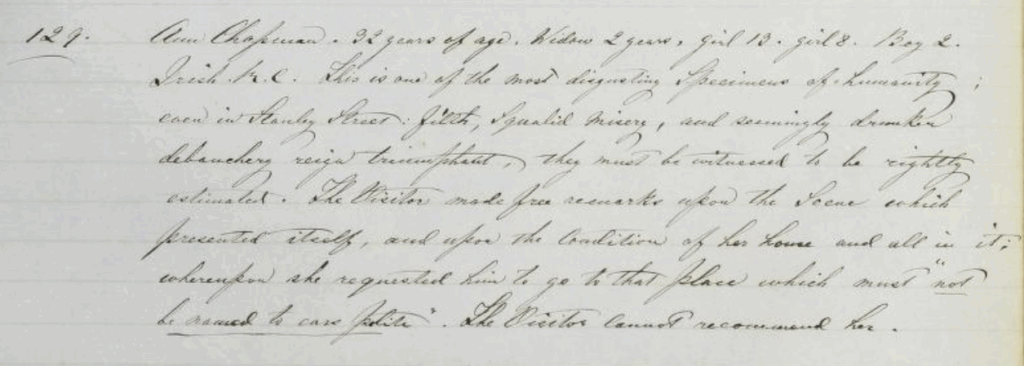 129. Ann Chapman. 32 years of age. Widow 2 years. girl 13. girl 8. Boy 2.
Irish. R. C. This is one of the most disgusting Specimens of humanity;
even in Stanley Street: filth, Squalid misery, and seemingly drunken
debauchery reign triumphant, they must be witnessed to be rightly
estimated. The Visitor made free remarks upon the Scene which
presented itself, and upon the Condition of her house and all in it;
whereupon she requested him to go to that place which must "not
be named to ears polite". The Visitor cannot recommend her.